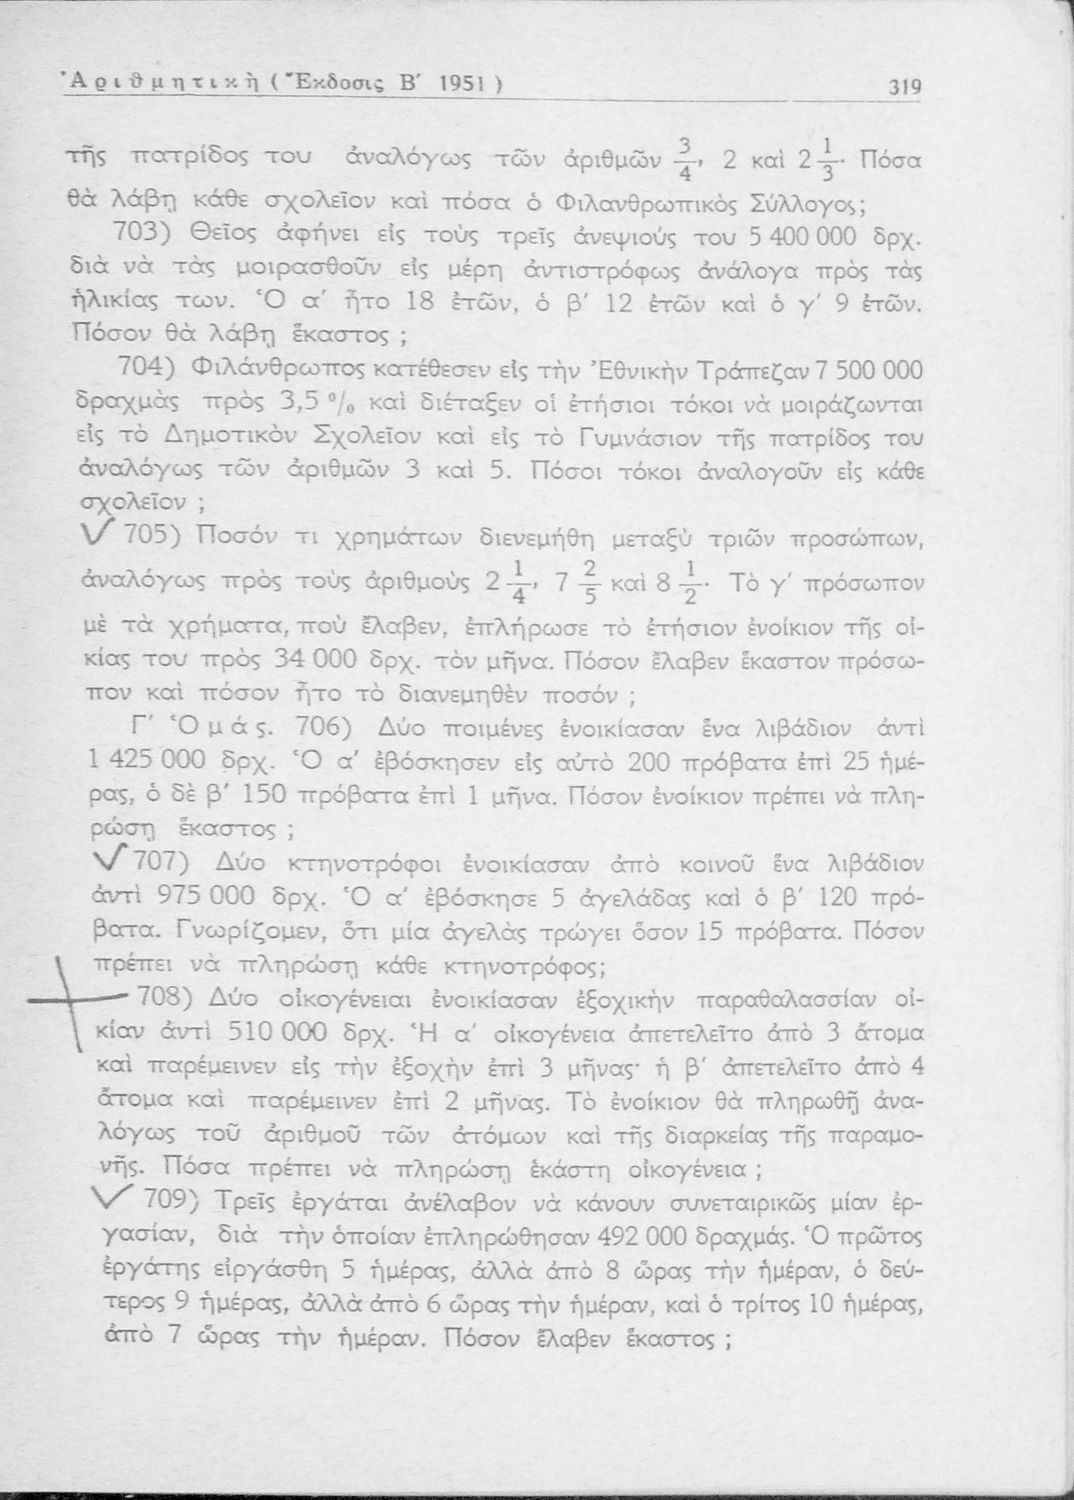 Ἀριθμητικὴ (Ἔκδοσις Β′ 1951)
319
τῆς πατρίδος του ἀναλόγως τῶν ἀριθμῶν 3/4, 2 καὶ 2 1/3. Πόσα
θὰ λάβῃ κάθε σχολεῖον καὶ πόσα ὁ Φιλανθρωπικὸς Σύλλογος;
703) Θεῖος ἀφήνει εἰς τοὺς τρεῖς ἀνεψιούς του 5 400 000 δρχ.
διὰ νὰ τὰς μοιρασθοῦν εἰς μέρη ἀντιστρόφως ἀνάλογα πρὸς τὰς
ἡλικίας των. Ὁ α′ ἦτο 18 ἐτῶν, ὁ β′ 12 ἐτῶν καὶ ὁ γ′ 9 ἐτῶν.
Πόσον θὰ λάβῃ ἕκαστος ;
704) Φιλάνθρωπος κατέθεσεν εἰς τὴν Ἐθνικὴν Τράπεζαν 7 500 000
δραχμὰς πρὸς 3,5 % καὶ διέταξεν οἱ ἐτήσιοι τόκοι νὰ μοιράζωνται
εἰς τὸ Δημοτικὸν Σχολεῖον καὶ εἰς τὸ Γυμνάσιον τῆς πατρίδος του
ἀναλόγως τῶν ἀριθμῶν 3 καὶ 5. Πόσοι τόκοι ἀναλογοῦν εἰς κάθε
σχολεῖον ;
705) Ποσόν τι χρημάτων διενεμήθη μεταξὺ τριῶν προσώπων,
ἀναλόγως πρὸς τοὺς ἀριθμοὺς 2 1/4, 7 2/5 καὶ 8 1/2. Τὸ γ′ πρόσωπον
μὲ τὰ χρήματα, ποὺ ἔλαβεν, ἐπλήρωσε τὸ ἐτήσιον ἐνοίκιον τῆς οἰ-
κίας του πρὸς 34 000 δρχ. τὸν μῆνα. Πόσον ἔλαβεν ἕκαστον πρόσω-
πον καὶ πόσον ἦτο τὸ διανεμηθὲν ποσόν ;
Γ′ Ὁμάς. 706) Δύο ποιμένες ἐνοικίασαν ἕνα λιβάδιον ἀντὶ
1 425 000 δρχ. Ὁ α′ ἐβόσκησεν εἰς αὐτὸ 200 πρόβατα ἐπὶ 25 ἡμέ-
ρας, ὁ δὲ β′ 150 πρόβατα ἐπὶ 1 μῆνα. Πόσον ἐνοίκιον πρέπει νὰ πλη-
ρώσῃ ἕκαστος ;
707) Δύο κτηνοτρόφοι ἐνοικίασαν ἀπὸ κοινοῦ ἕνα λιβάδιον
ἀντὶ 975 000 δρχ. Ὁ α′ ἐβόσκησε 5 ἀγελάδας καὶ ὁ β′ 120 πρό-
βατα. Γνωρίζομεν, ὅτι μία ἀγελὰς τρώγει ὅσον 15 πρόβατα. Πόσον
πρέπει νὰ πληρώσῃ κάθε κτηνοτρόφος;
708) Δύο οἰκογένειαι ἐνοικίασαν ἐξοχικὴν παραθαλασσίαν οἰ-
κίαν ἀντὶ 510 000 δρχ. Ἡ α′ οἰκογένεια ἀπετελεῖτο ἀπὸ 3 ἄτομα
καὶ παρέμεινεν εἰς τὴν ἐξοχὴν ἐπὶ 3 μῆνας· ἡ β′ ἀπετελεῖτο ἀπὸ 4
ἄτομα καὶ παρέμεινεν ἐπὶ 2 μῆνας. Τὸ ἐνοίκιον θὰ πληρωθῇ ἀνα-
λόγως τοῦ ἀριθμοῦ τῶν ἀτόμων καὶ τῆς διαρκείας τῆς παραμο-
νῆς. Πόσα πρέπει νὰ πληρώσῃ ἑκάστη οἰκογένεια ;
709) Τρεῖς ἐργάται ἀνέλαβον νὰ κάνουν συνεταιρικῶς μίαν ἐρ-
γασίαν, διὰ τὴν ὁποίαν ἐπληρώθησαν 492 000 δραχμάς. Ὁ πρῶτος
ἐργάτης εἰργάσθη 5 ἡμέρας, ἀλλὰ ἀπὸ 8 ὥρας τὴν ἡμέραν, ὁ δεύ-
τερος 9 ἡμέρας, ἀλλὰ ἀπὸ 6 ὥρας τὴν ἡμέραν, καὶ ὁ τρίτος 10 ἡμέρας,
ἀπὸ 7 ὥρας τὴν ἡμέραν. Πόσον ἔλαβεν ἕκαστος ;